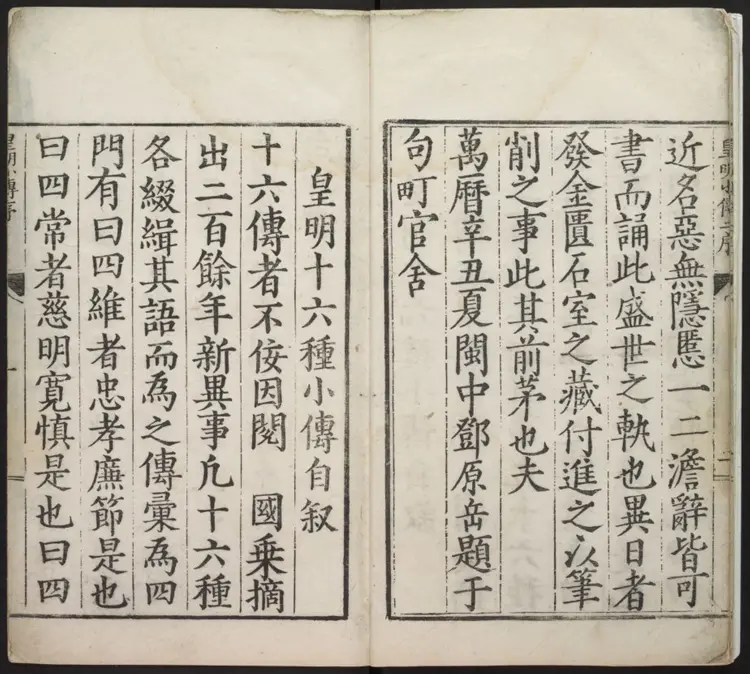 近名惡無隱慝一二澹辭皆可
書而誦此盛世之軼也異日者
發金匱石室之藏付進之以筆
削之事此其前茅也夫
萬曆辛丑夏閩中鄧原岳題于
句町官舍
皇明十六種小傳自叙
十六傳者不佞因閱　國乗摘
出二百餘年新異事凢十六種
各綴緝其語而為之傳彙為四
門有曰四維者忠孝廉節是也
曰四常者慈明寬慎是也曰四